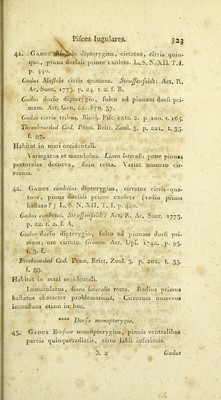 Pisces Iugulares. 323
41. GADUS Mustela dipterygius, cirratus, cirris quin-
que, pinna dorsali priore exoleto. L. S. N. XII. T. I.
p. 440.
Gadus Mustela cirris quinque. Strussenfeldt: Act. R.
Ac. Suec. 1773. p. 24 t. 2. f. B.
Gadus dorso dipterygio, sulco ad pinnam dorsi pri-
mam. Art. Gen. 22. Syn. 37.
Gadus cirris tribus. Bloch. Fisc. extr. 2. p. 100. t. 165.
Threebearded Cod. Penn. Britt. Zool. 3. p. 201. t. 33.
f. 87.
Habitat in mari occidentali.
Variegatus et maculosus. Linea lateralis pone pinnas
pectorales decurva, dein recta. Variat numero cir-
rorum.
42. GADUS cimbrius dipterygius, cirratus cirris qua-
tuor, pinna dorsali priore exoleta (radio primo
hastato?) L. S. N. XII. T. I. p. 440.
Gadus cimbrius. Strussenfeldt: Act. R. Ac. Suec. 1773.
p. 22. t. 2. f. A.
Gadus dorso dipterygio, sulco ad pinnam dorsi pri-
mam, ore cirrato. Gronov. Act. Upf. 1742. p. 93.
t. 3. f.
Fivebearded Cod. Penn. Britt. Zool. 3. p. 202. t. 33.
f. 88.
Habitat in mari occidentali.
Immaculatus, linea lateralis recta. Radius primus
hastatus character problematicus. Cirrorum numerus
inconstans etiam in hoc.
**** Dorso monopterygio.
43. GADUS Brosme monopterygius, pinnis ventralibus
parvis quinqueradiatis, cirro labii inferioris.
X 2 Gadus